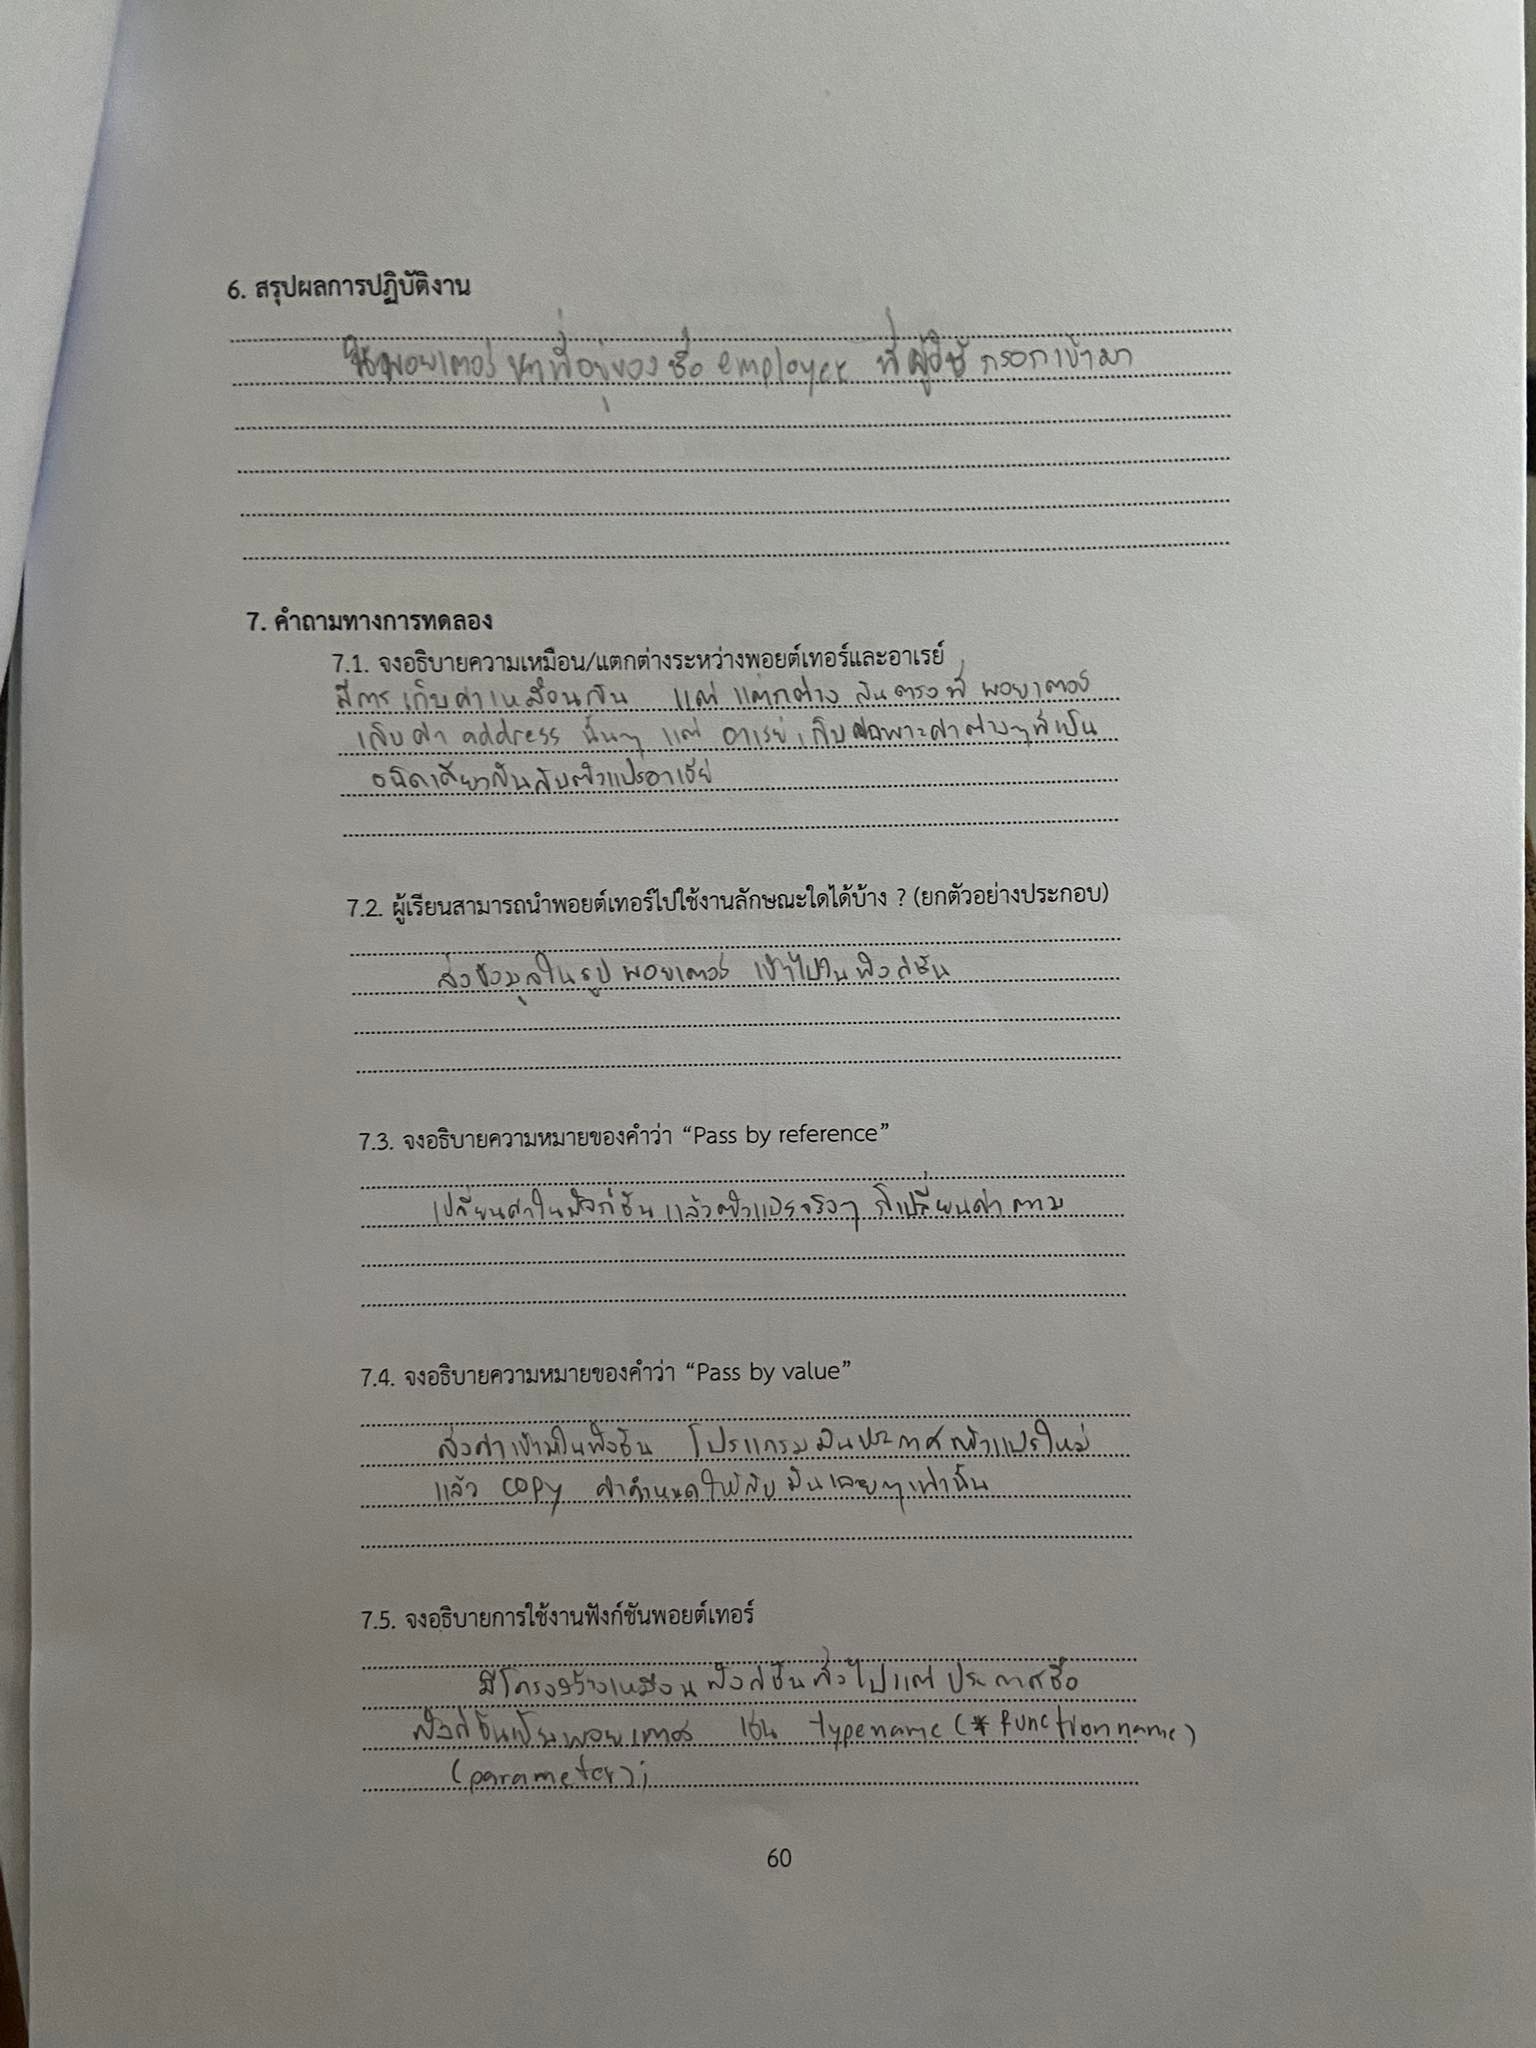 6. สรุปผลการปฏิบัติงาน
ใช้พอยเตอร์ หาที่อยู่ของ ชื่อ employee ที่ ผู้ใช้ กรอกเข้ามา
7. คำถามทางการทดลอง
7.1. จงอธิบายความเหมือน/แตกต่างระหว่างพอยต์เทอร์และอาเรย์
มีการ เก็บค่าเหมือนกัน แต่ แตกต่าง กันตรงที่ พอยเตอร์
เก็บค่า address นั้นๆ แต่ อาเรย์ เก็บเฉพาะค่าต่างๆที่เป็น
ชนิดเดียวกันกับตัวแปรอาเรย์
7.2. ผู้เรียนสามารถนำพอยต์เทอร์ไปใช้งานลักษณะใดได้บ้าง ? (ยกตัวอย่างประกอบ)
ส่งข้อมูลในรูป พอยเตอร์ เข้าไปในฟังก์ชัน
7.3. จงอธิบายความหมายของคำว่า “Pass by reference”
เปลี่ยนค่าในฟังก์ชัน แล้วตัวแปรจริงๆ ก็เปลี่ยนค่า ตาม
7.4. จงอธิบายความหมายของคำว่า “Pass by value”
ส่งค่าเข้ามาในฟังชัน โปรแกรมมันประกาศ ตัวแปรใหม่
แล้ว copy ค่ากำหนดให้กับ มันเฉยๆเท่านั้น
7.5. จงอธิบายการใช้งานฟังก์ชันพอยต์เทอร์
มีโครงสร้างเหมือน ฟังก์ชันทั่วไปแต่ ประกาศชื่อ
ฟังก์ชันเป็นพอยเตอร์ เช่น typename (* function name)
(parameter);
60